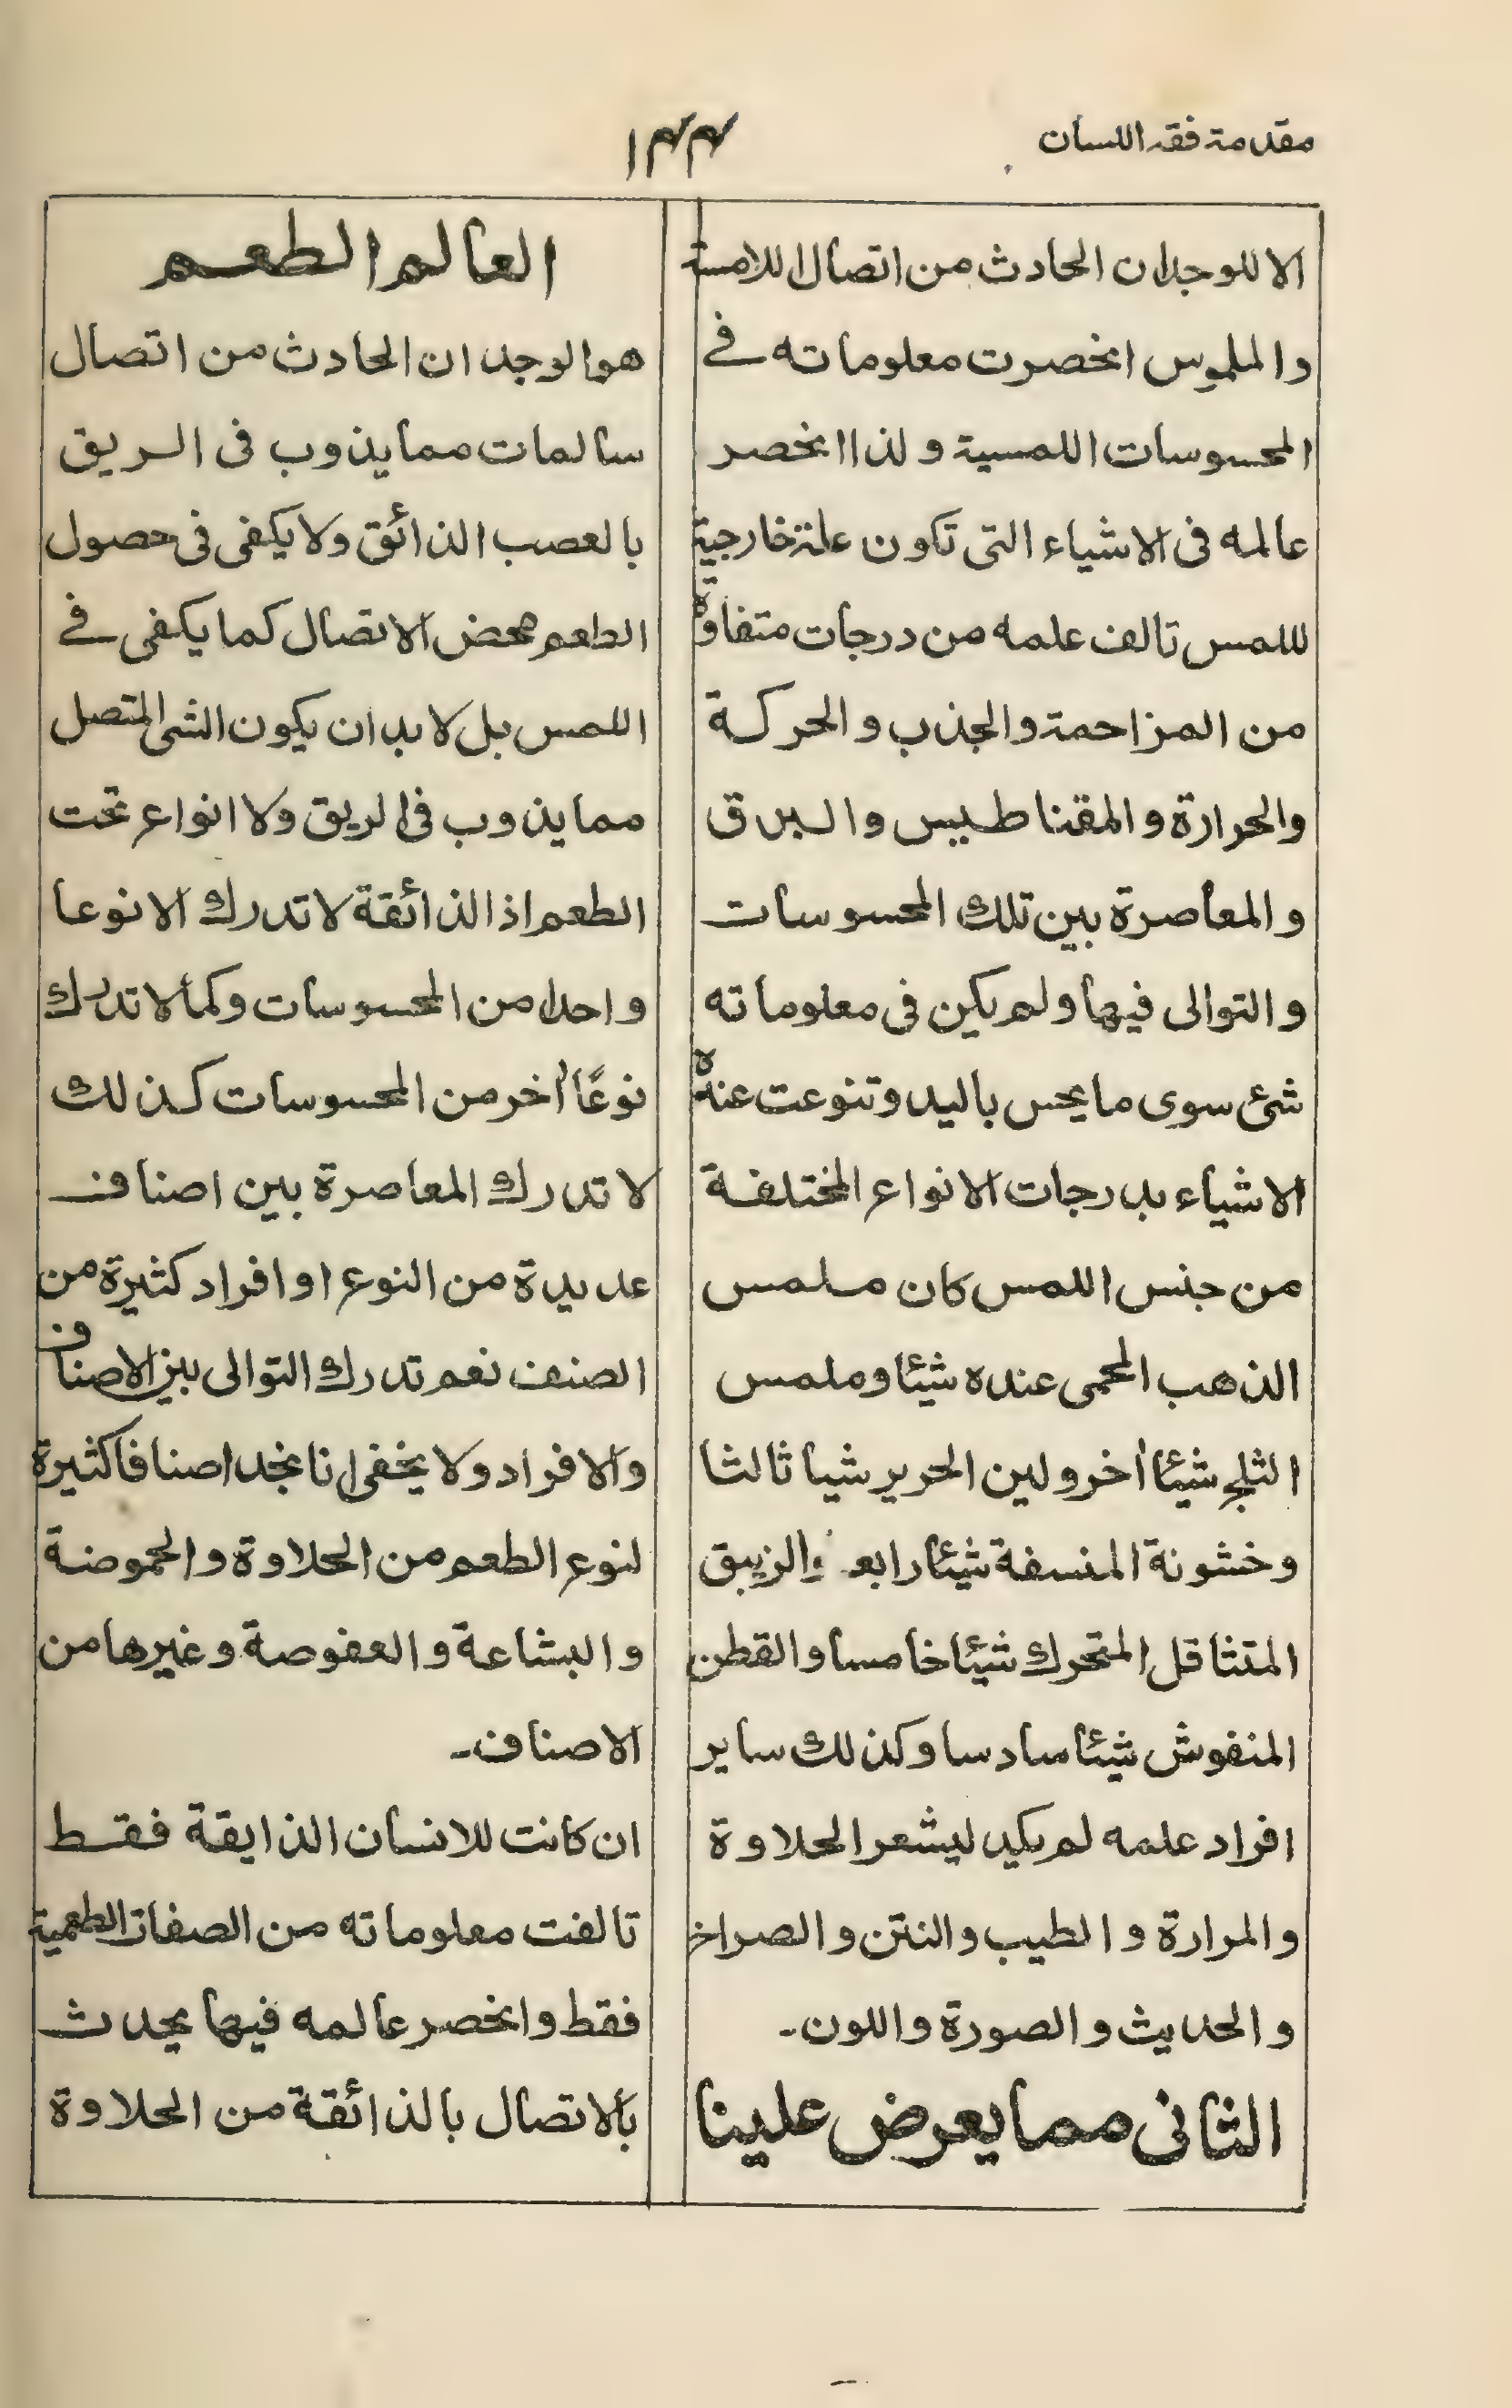 مقدمة فقه اللسان
١٣٣
الا للوجدان الحادث من اتصال اللامسة
والملموس انحصرت معلوماته في
المحسوسات اللمسية ولذا انحصر
عالمه في الاشياء التى تكون علة خارجية
لللمس تالف علمه من درجات متفاوتة
من المزاحمة والجذب والحركة
والحرارة والمقناطيس والبرق
والمعاصرة بين تلك المحسوسات
والتوالى فيها ولم يكن في معلوماته
شئ سوى ما يحس باليد وتنوعت عنده
الاشياء بدرجات الانواع المختلفة
من جنس اللمس كان ملمس
الذهب المحمى عنده شيئا وملمس
الثلج شيئا أخر ولين الحرير شيا ثالثا
وخشونة المنسفة شيئا رابعا والزيبق
المتثاقل المتحرك شيئا خامسا والقطن
المنفوش شيئا سادسا وكذلك ساير
افراد علمه لم يكد ليشعر الحلاوة
والمرارة والطيب والنتن والصراخ
والحديث والصورة واللون۔
الثانى مما يعرض علينا
العالم الطعم
هو الوجدان الحادث من اتصال
سالمات مما يذوب فى الريق
بالعصب الذائق ولا يكفى فى حصول
الطعم محض الاتصال كما يكفى في
اللمس بل لا بد ان يكون الشى المتصل
مما يذوب فى الريق ولا انواع تحت
الطعم اذ الذائقة لا تدرك الا نوعا
واحدا من المحسوسات وكما لا تدرك
نوعًا أخر من المحسوسات كذلك
لا تدرك المعاصرة بين اصناف
عديدة من النوع او افراد كثيرة من
الصنف نعم تدرك التوالى بين الاصناف
والافراد ولا يخفى انا نجد اصنافا كثيرة
لنوع الطعم من الحلاوة والحموضة
والبشاعة والعفوصة وغيرها من
الاصناف۔
ان كانت للانسان الذايقة فقط
تالفت معلوماته من الصفات الطعمية
فقط وانحصر عالمه فيها يحدث
بالاتصال بالذائقة من الحلاوة